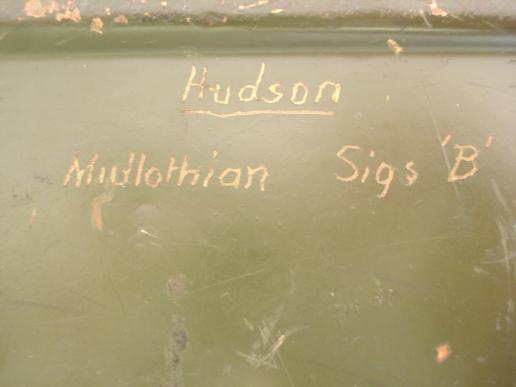 Hudson
Midlothian Sigs 'B'